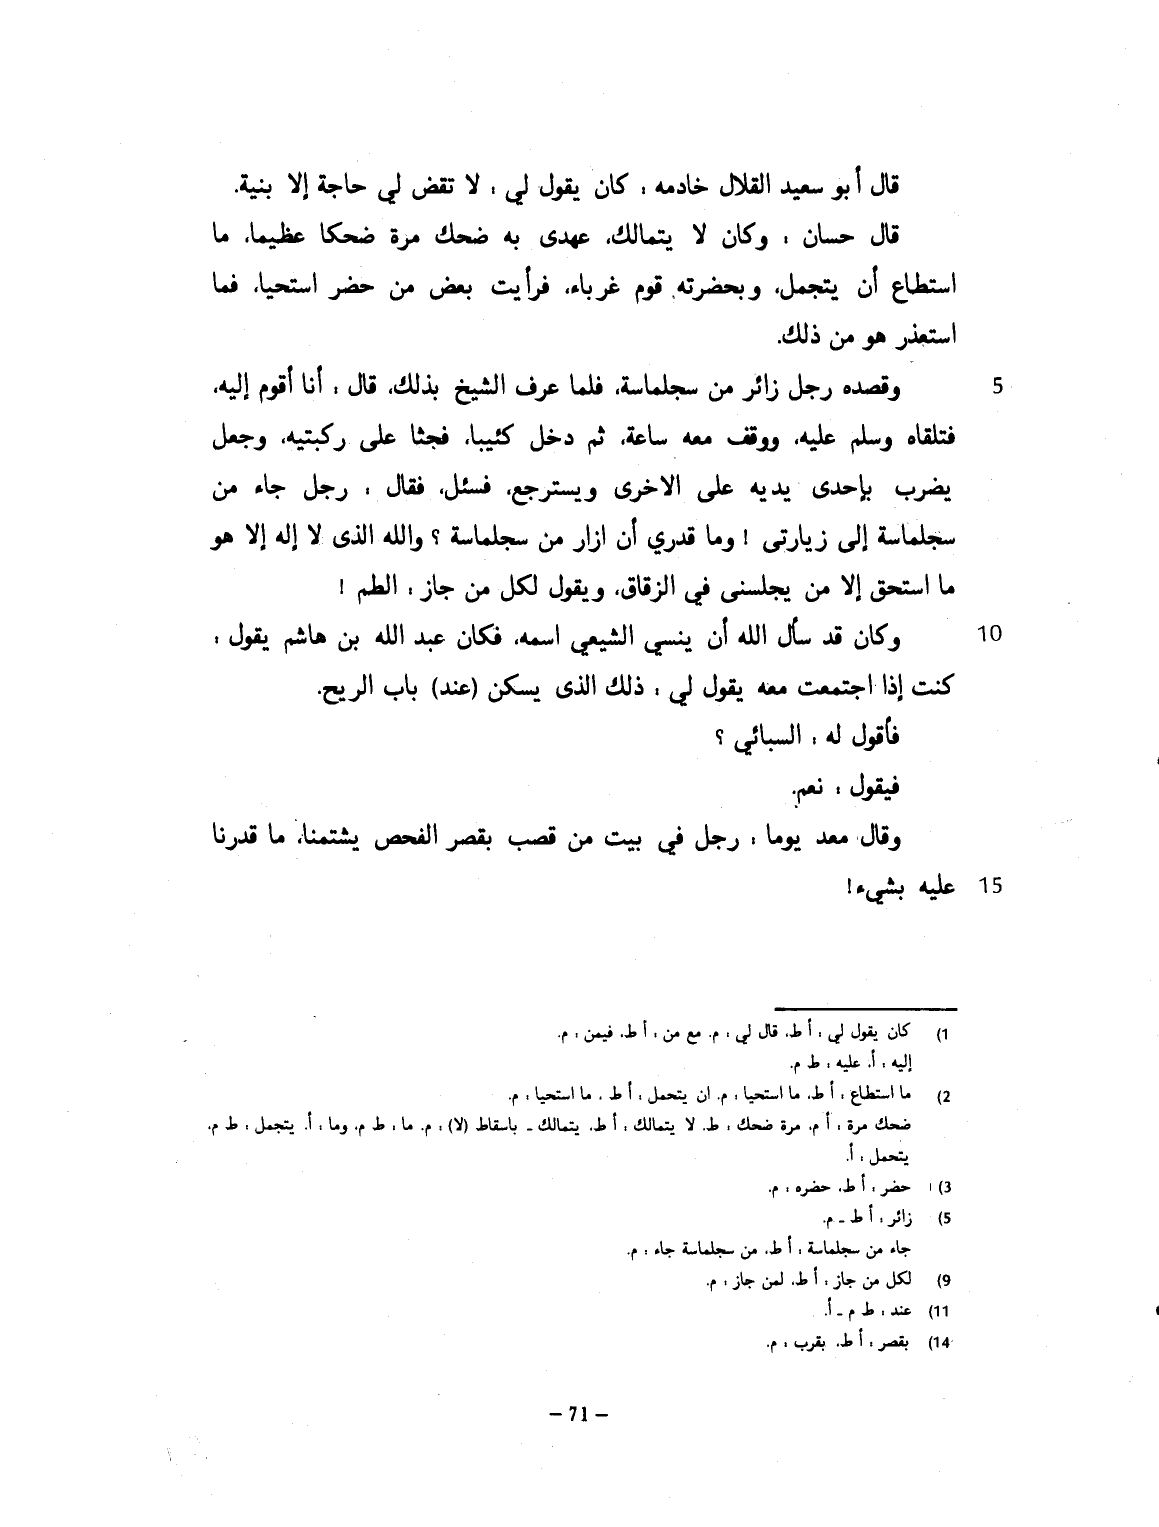 قال أبو سعيد القلال خادمه : كان يقول لي : لا تقض لي حاجة إلا بنية.
قال حسان : وكان لا يتمالك، عهدى به ضحك مرة ضحكا عظيما، ما
استطاع أن يتجمل، وبحضرته قوم غرباء، فرأيت بعض من حضر استحيا، فما
استعذر هو من ذلك.
5 وقصده رجل زائر من سجلماسة، فلما عرف الشيخ بذلك، قال : أنا أقوم إليه،
فتلقاه وسلم عليه، ووقف معه ساعة، ثم دخل كئيبا، فجثا على ركبتيه، وجعل
يضرب بإحدى يديه على الاخرى ويسترجع، فسئل، فقال : رجل جاء من
سجلماسة إلى زيارتى ! وما قدري أن ازار من سجلماسة ؟ والله الذى لا إله إلا هو
ما استحق إلا من يجلسنى في الزقاق، ويقول لكل من جاز : الطم !
10 وكان قد سأل الله أن ينسي الشيعي اسمه، فكان عبد الله بن هاشم يقول :
كنت إذا اجتمعت معه يقول لي : ذلك الذى يسكن (عند) باب الريح.
فأقول له : السبائي ؟
فيقول : نعم.
وقال معد يوما : رجل في بيت من قصب بقصر الفحص يشتمنا، ما قدرنا
15 عليه بشيء!
1) كان يقول لي : أ ط، قال لي : م. مع من : أ ط، فيمن : م.
إليه : أ. عليه : ط م.
2) ما استطاع : أ ط، ما استحيا : م. ان يتحمل : أ ط . ما استحيا : م.
ضحك مرة : أ م، مرة ضحك : ط. لا يتمالك : أ ط، يتمالك ـ باسقاط (لا) : م. ما : ط م، وما : أ. يتجمل : ط م،
يتحمل : أ.
3) حضر : أ ط، حضره : م.
5) زائر : أ ط ـ م.
جاء من سجلماسة : أ ط، من سجلماسة جاء : م.
9) لكل من جاز : أ ط، لمن جاز : م.
11) عند : ط م ـ أ.
14) بقصر : أ ط، بقرب : م.
– 71 –